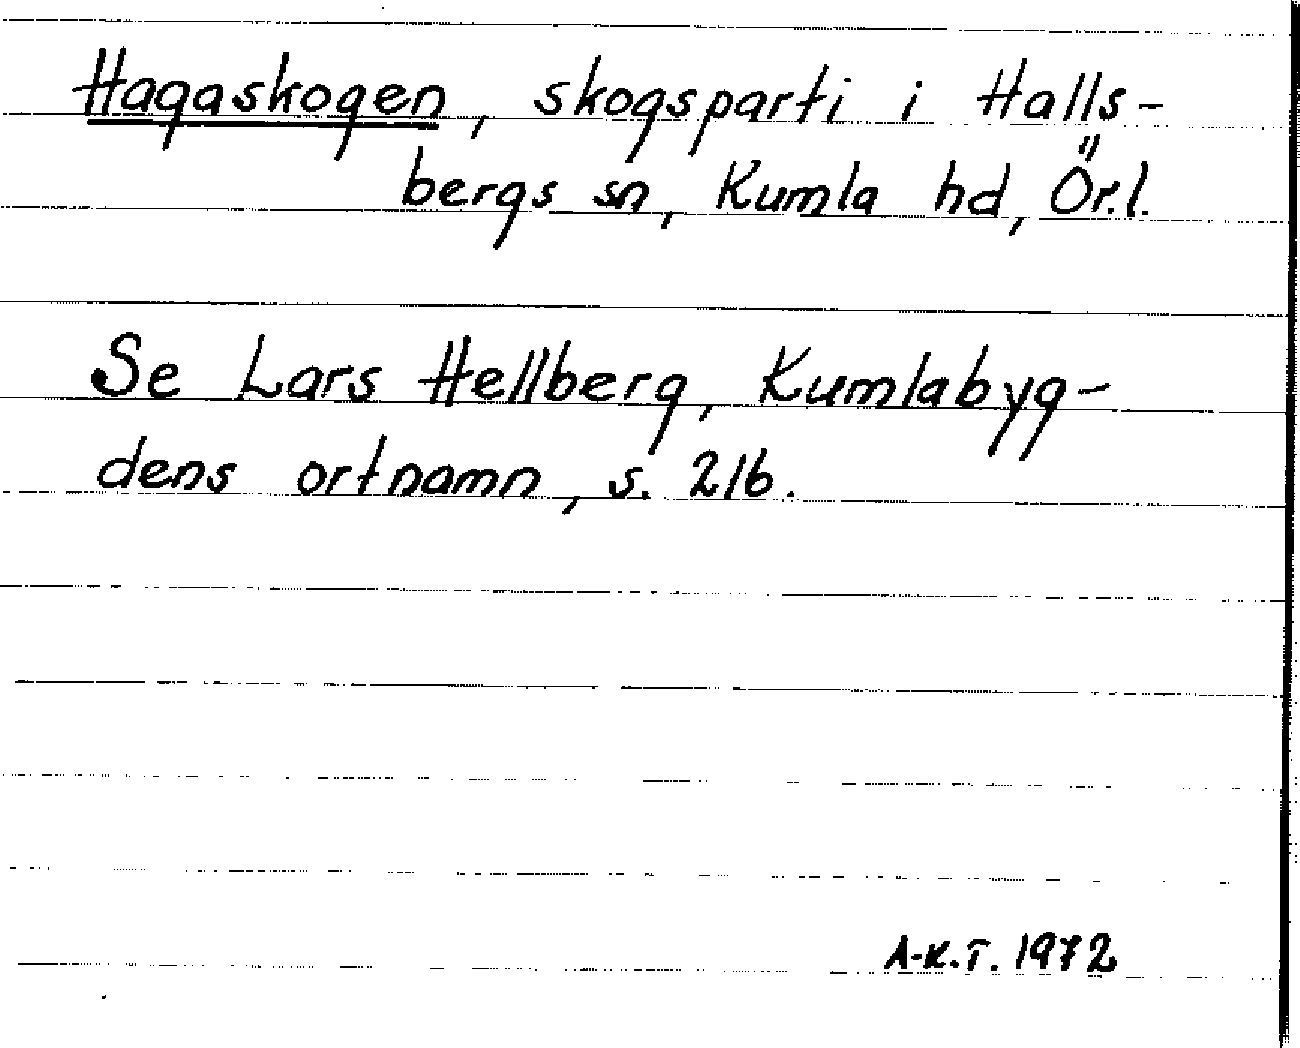 Hagaskogen, skogsparti i Halls-
bergs sn, Kumla hd, Ör.l.
Se Lars Hellberg, Kumlabyg-
dens ortnamn, s. 216.
A-K.T. 1972